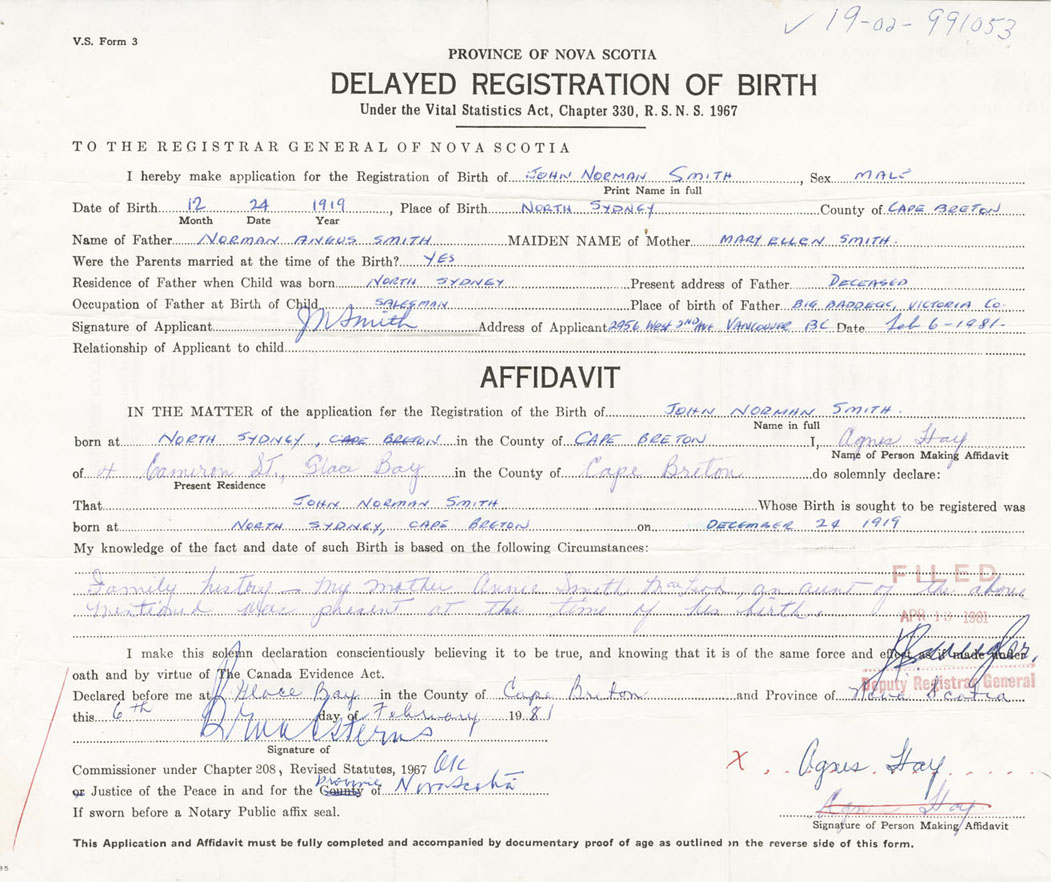 ✓ 19-02-991053
V.S. Form 3
PROVINCE OF NOVA SCOTIA
DELAYED REGISTRATION OF BIRTH
Under the Vital Statistics Act, Chapter 330, R. S. N. S. 1967
TO THE REGISTRAR GENERAL OF NOVA SCOTIA
I hereby make application for the Registration of Birth of JOHN NORMAN SMITH, Sex MALE
Print Name in full
Date of Birth 12 24 1919, Place of Birth NORTH SYDNEY County of CAPE BRETON
Month Date Year
Name of Father NORMAN ANGUS SMITH MAIDEN NAME of Mother MARY ELLEN SMITH.
Were the Parents married at the time of the Birth? YES
Residence of Father when Child was born NORTH SYDNEY Present address of Father DECEASED
Occupation of Father at Birth of Child SALESMAN Place of birth of Father BIG BADDECK, VICTORIA CO.
Signature of Applicant JN Smith Address of Applicant 2956 WEST 2ND AVE. VANCOUVER BC Date Feb 6-1981.
Relationship of Applicant to child
AFFIDAVIT
IN THE MATTER of the application for the Registration of the Birth of JOHN NORMAN SMITH.
Name in full
born at NORTH SYDNEY, CAPE BRETON in the County of CAPE BRETON I, Agnes Hay
Name of Person Making Affidavit
of Cameron St., Glace Bay in the County of Cape Breton do solemnly declare:
Present Residence
That JOHN NORMAN SMITH Whose Birth is sought to be registered was
born at NORTH SYDNEY, CAPE BRETON on DECEMBER 24 1919
My knowledge of the fact and date of such Birth is based on the following Circumstances:
Family history - My mother Annie Smith, an aunt of the above
mentioned was present at the time of his birth.
FILED
APR 1981
I make this solemn declaration conscientiously believing it to be true, and knowing that it is of the same force and effect as if made under
oath and by virtue of The Canada Evidence Act.
Deputy Registrar General
Declared before me at Glace Bay in the County of Cape Breton and Province of Nova Scotia
this 6th day of February 1981
Signature of
Commissioner under Chapter 208, Revised Statutes, 1967 OK
or Justice of the Peace in and for the County province of Nova Scotia
If sworn before a Notary Public affix seal.
X Agnes Hay
Agnes Hay
Signature of Person Making Affidavit
This Application and Affidavit must be fully completed and accompanied by documentary proof of age as outlined on the reverse side of this form.